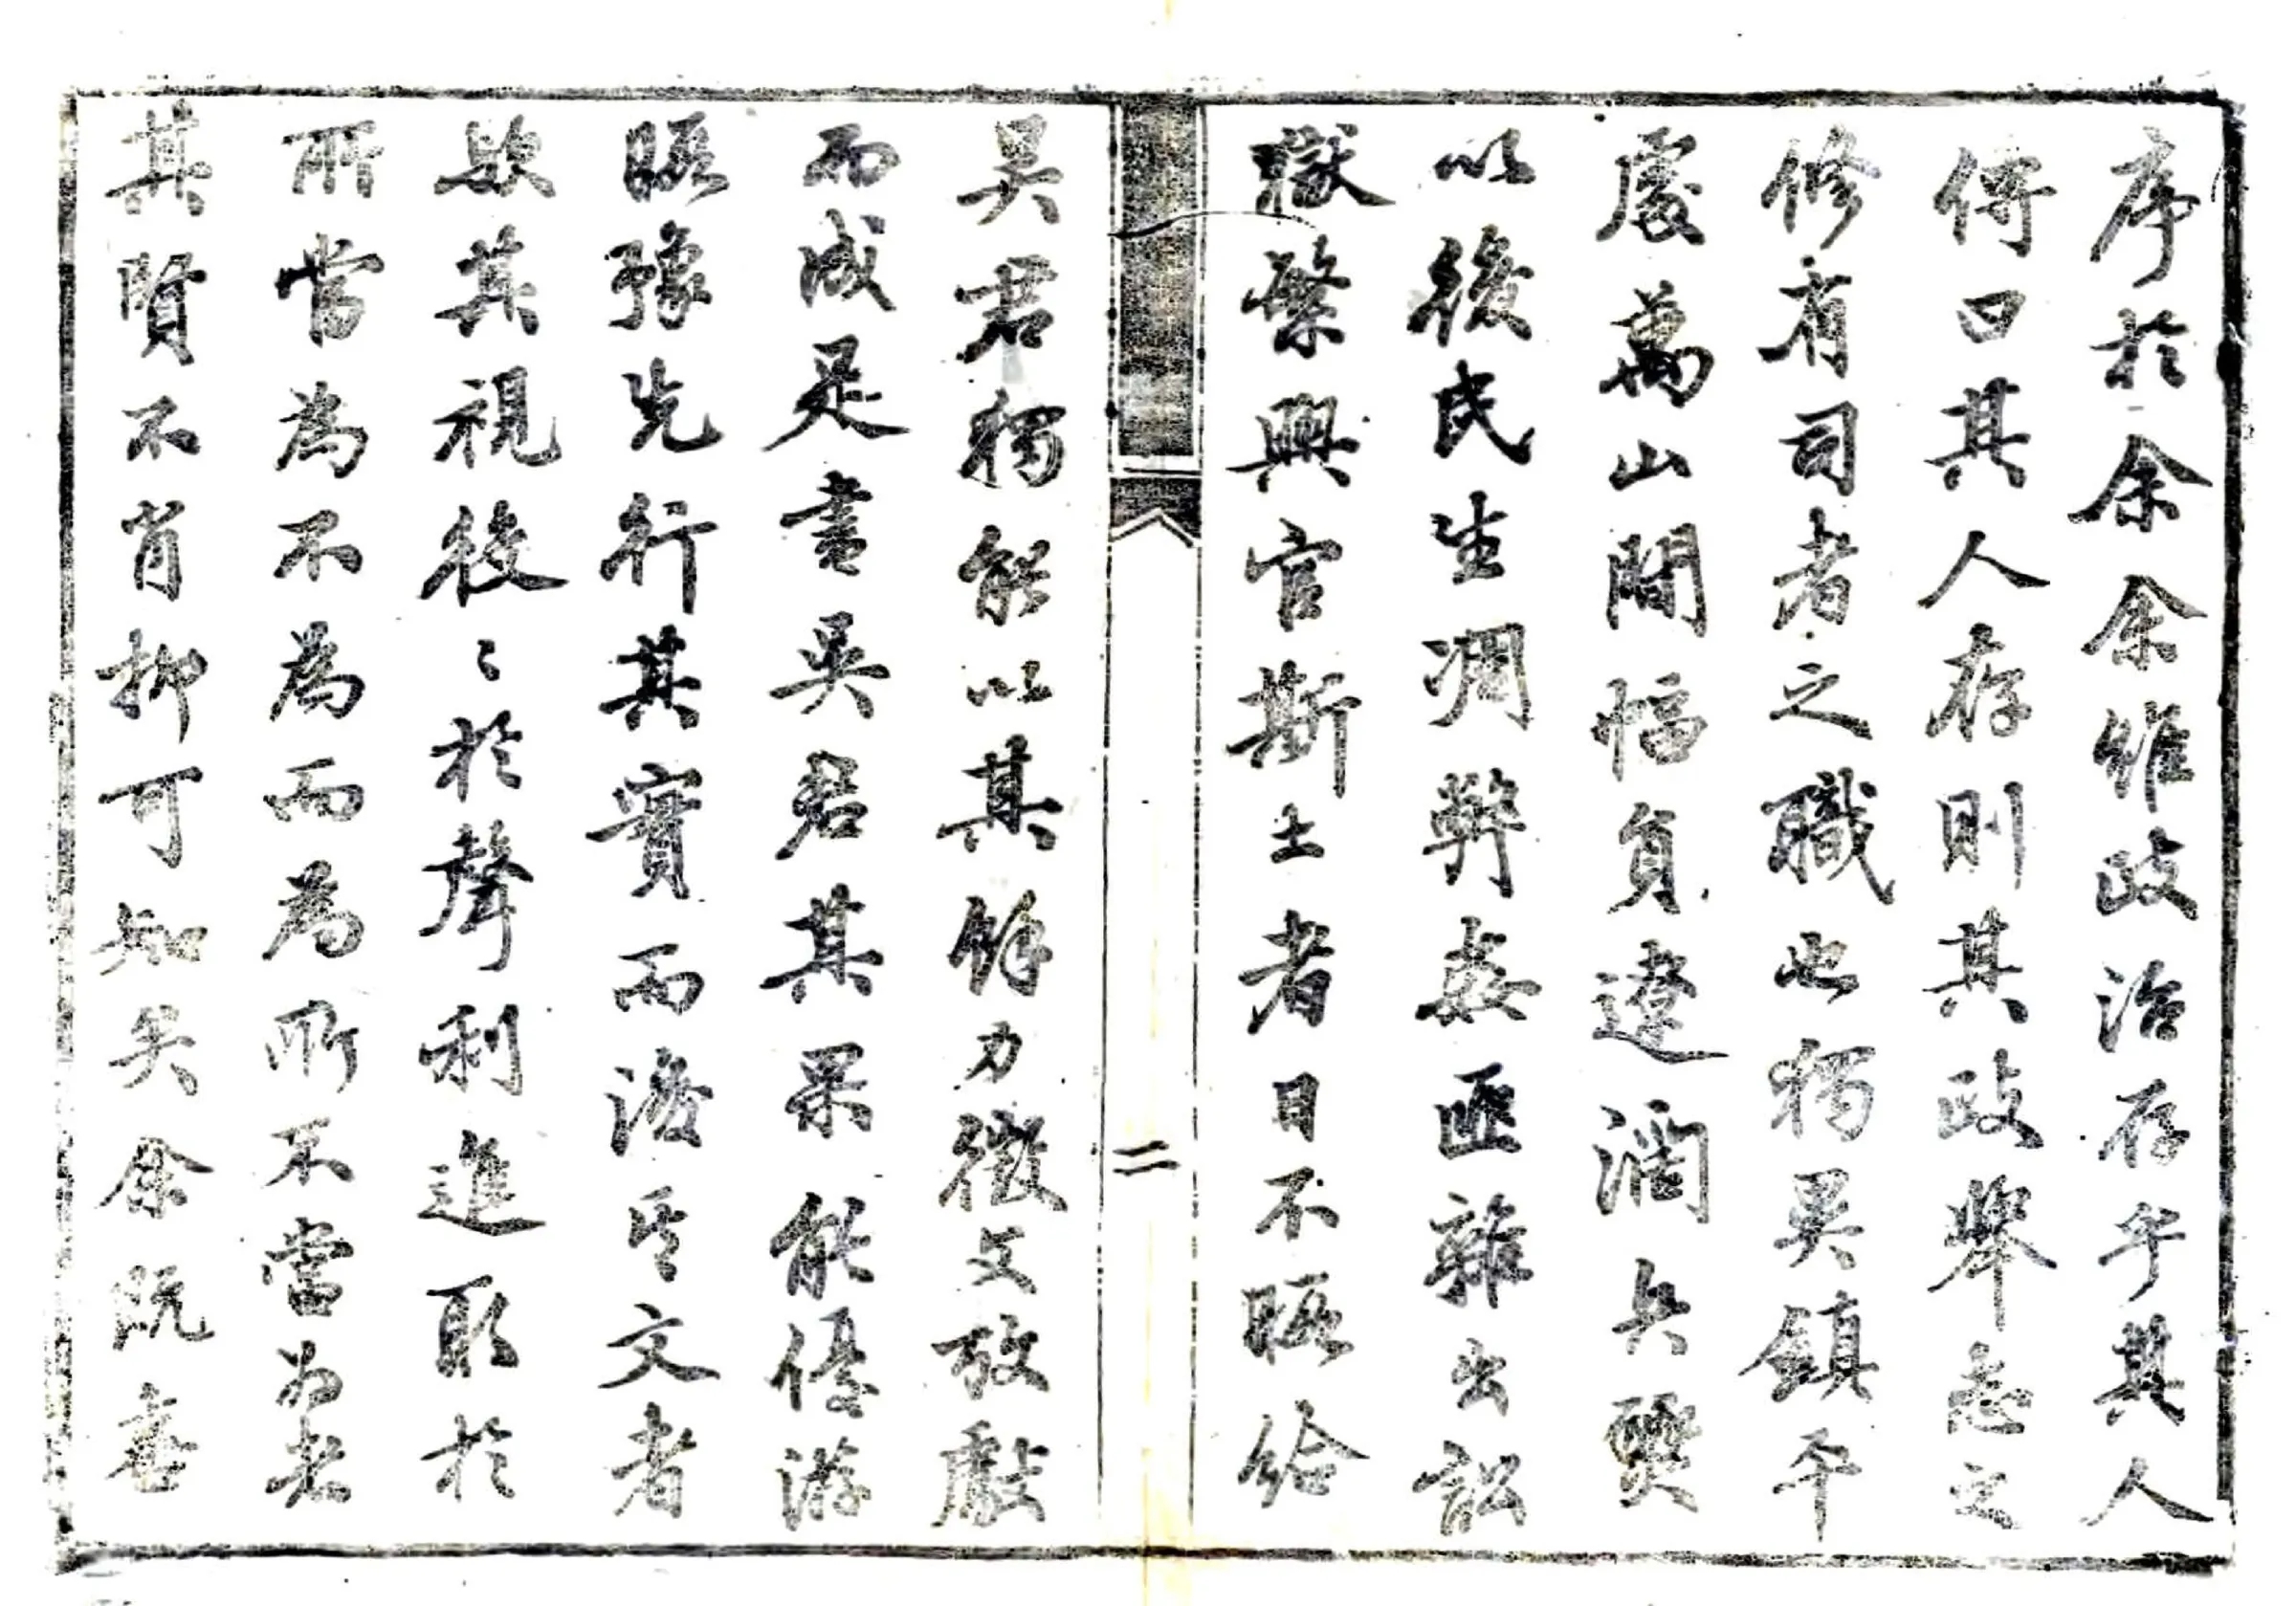 序於余余維政治存乎其人
傳曰其人存則其政舉志之
修有司者之職也獨吳鎮平
處萬山間幅員遼濶兵燹
以後民生凋弊姦匪雜出訟
獄繁興官斯土者日不暇給
二
吳君獨能以其餘力徵文攷獻
而成是書吳君其果能優游
暇豫先行其實而後其文者
歟其視役〻於聲利進取於
所當為不為而為所不當為者
其賢不肖抑可知矣余既喜